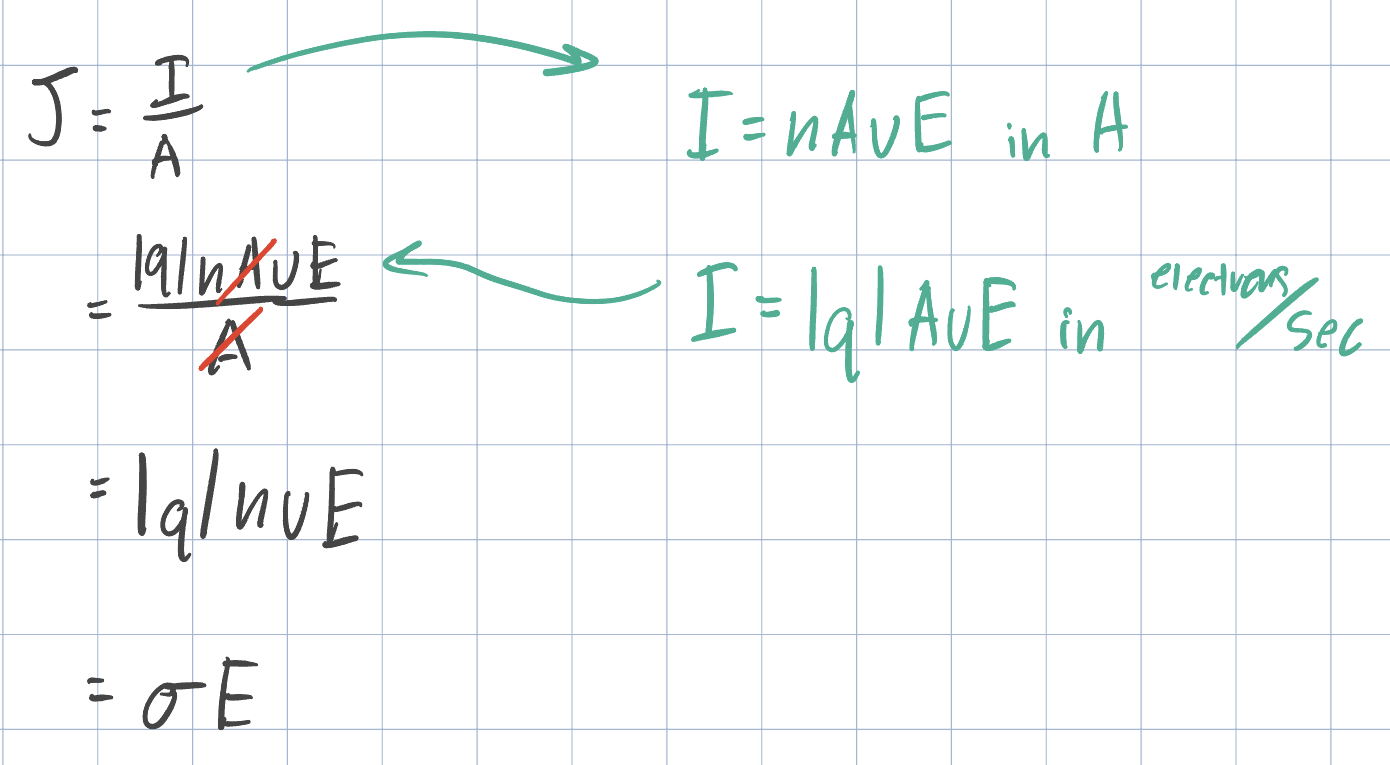 J = I/A
I = nAuE in A
= |q|nAuE/A
I = |q|AuE in electrons/sec
= |q|nuE
= σE